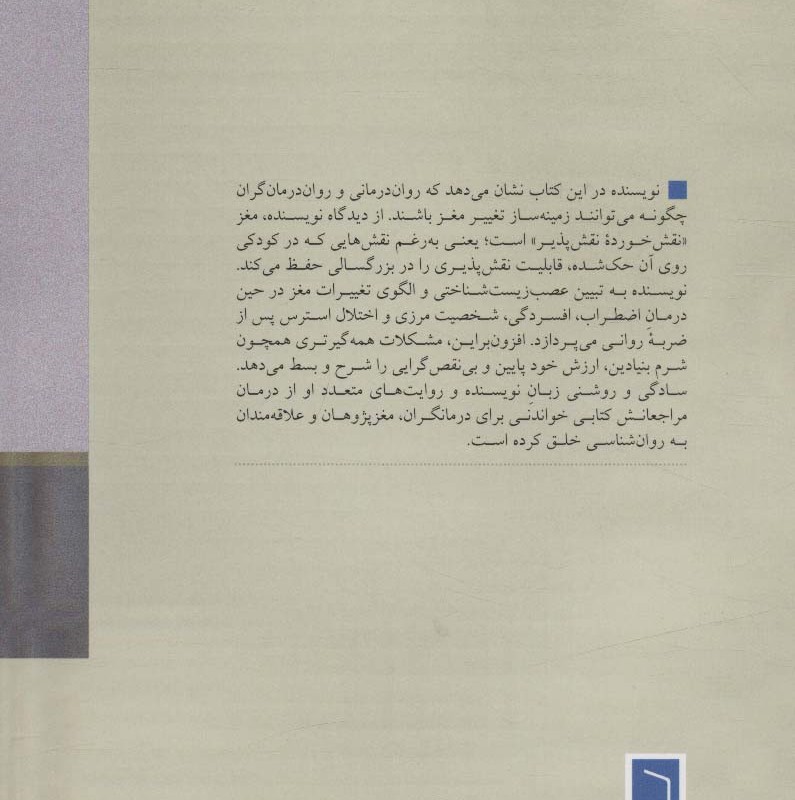 نویسنده در این کتاب نشان می‌دهد که روان‌درمانی و روان‌درمان‌گران
چگونه می‌توانند زمینه‌ساز تغییر مغز باشند. از دیدگاه نویسنده، مغز
«نقش‌خوردهٔ نقش‌پذیر» است؛ یعنی به‌رغم نقش‌هایی که در کودکی
روی آن حک‌شده، قابلیت نقش‌پذیری را در بزرگسالی حفظ می‌کند.
نویسنده به تبیین عصب‌زیست‌شناختی و الگوی تغییرات مغز در حین
درمانِ اضطراب، افسردگی، شخصیت مرزی و اختلال استرس پس از
ضربهٔ روانی می‌پردازد. افزون‌براین، مشکلات همه‌گیرتری همچون
شرم بنیادین، ارزش خود پایین و بی‌نقص‌گرایی را شرح و بسط می‌دهد.
سادگی و روشنی زبانِ نویسنده و روایت‌های متعدد او از درمان
مراجعانش کتابی خواندنی برای درمانگران، مغزپژوهان و علاقه‌مندان
به روان‌شناسی خلق کرده است.